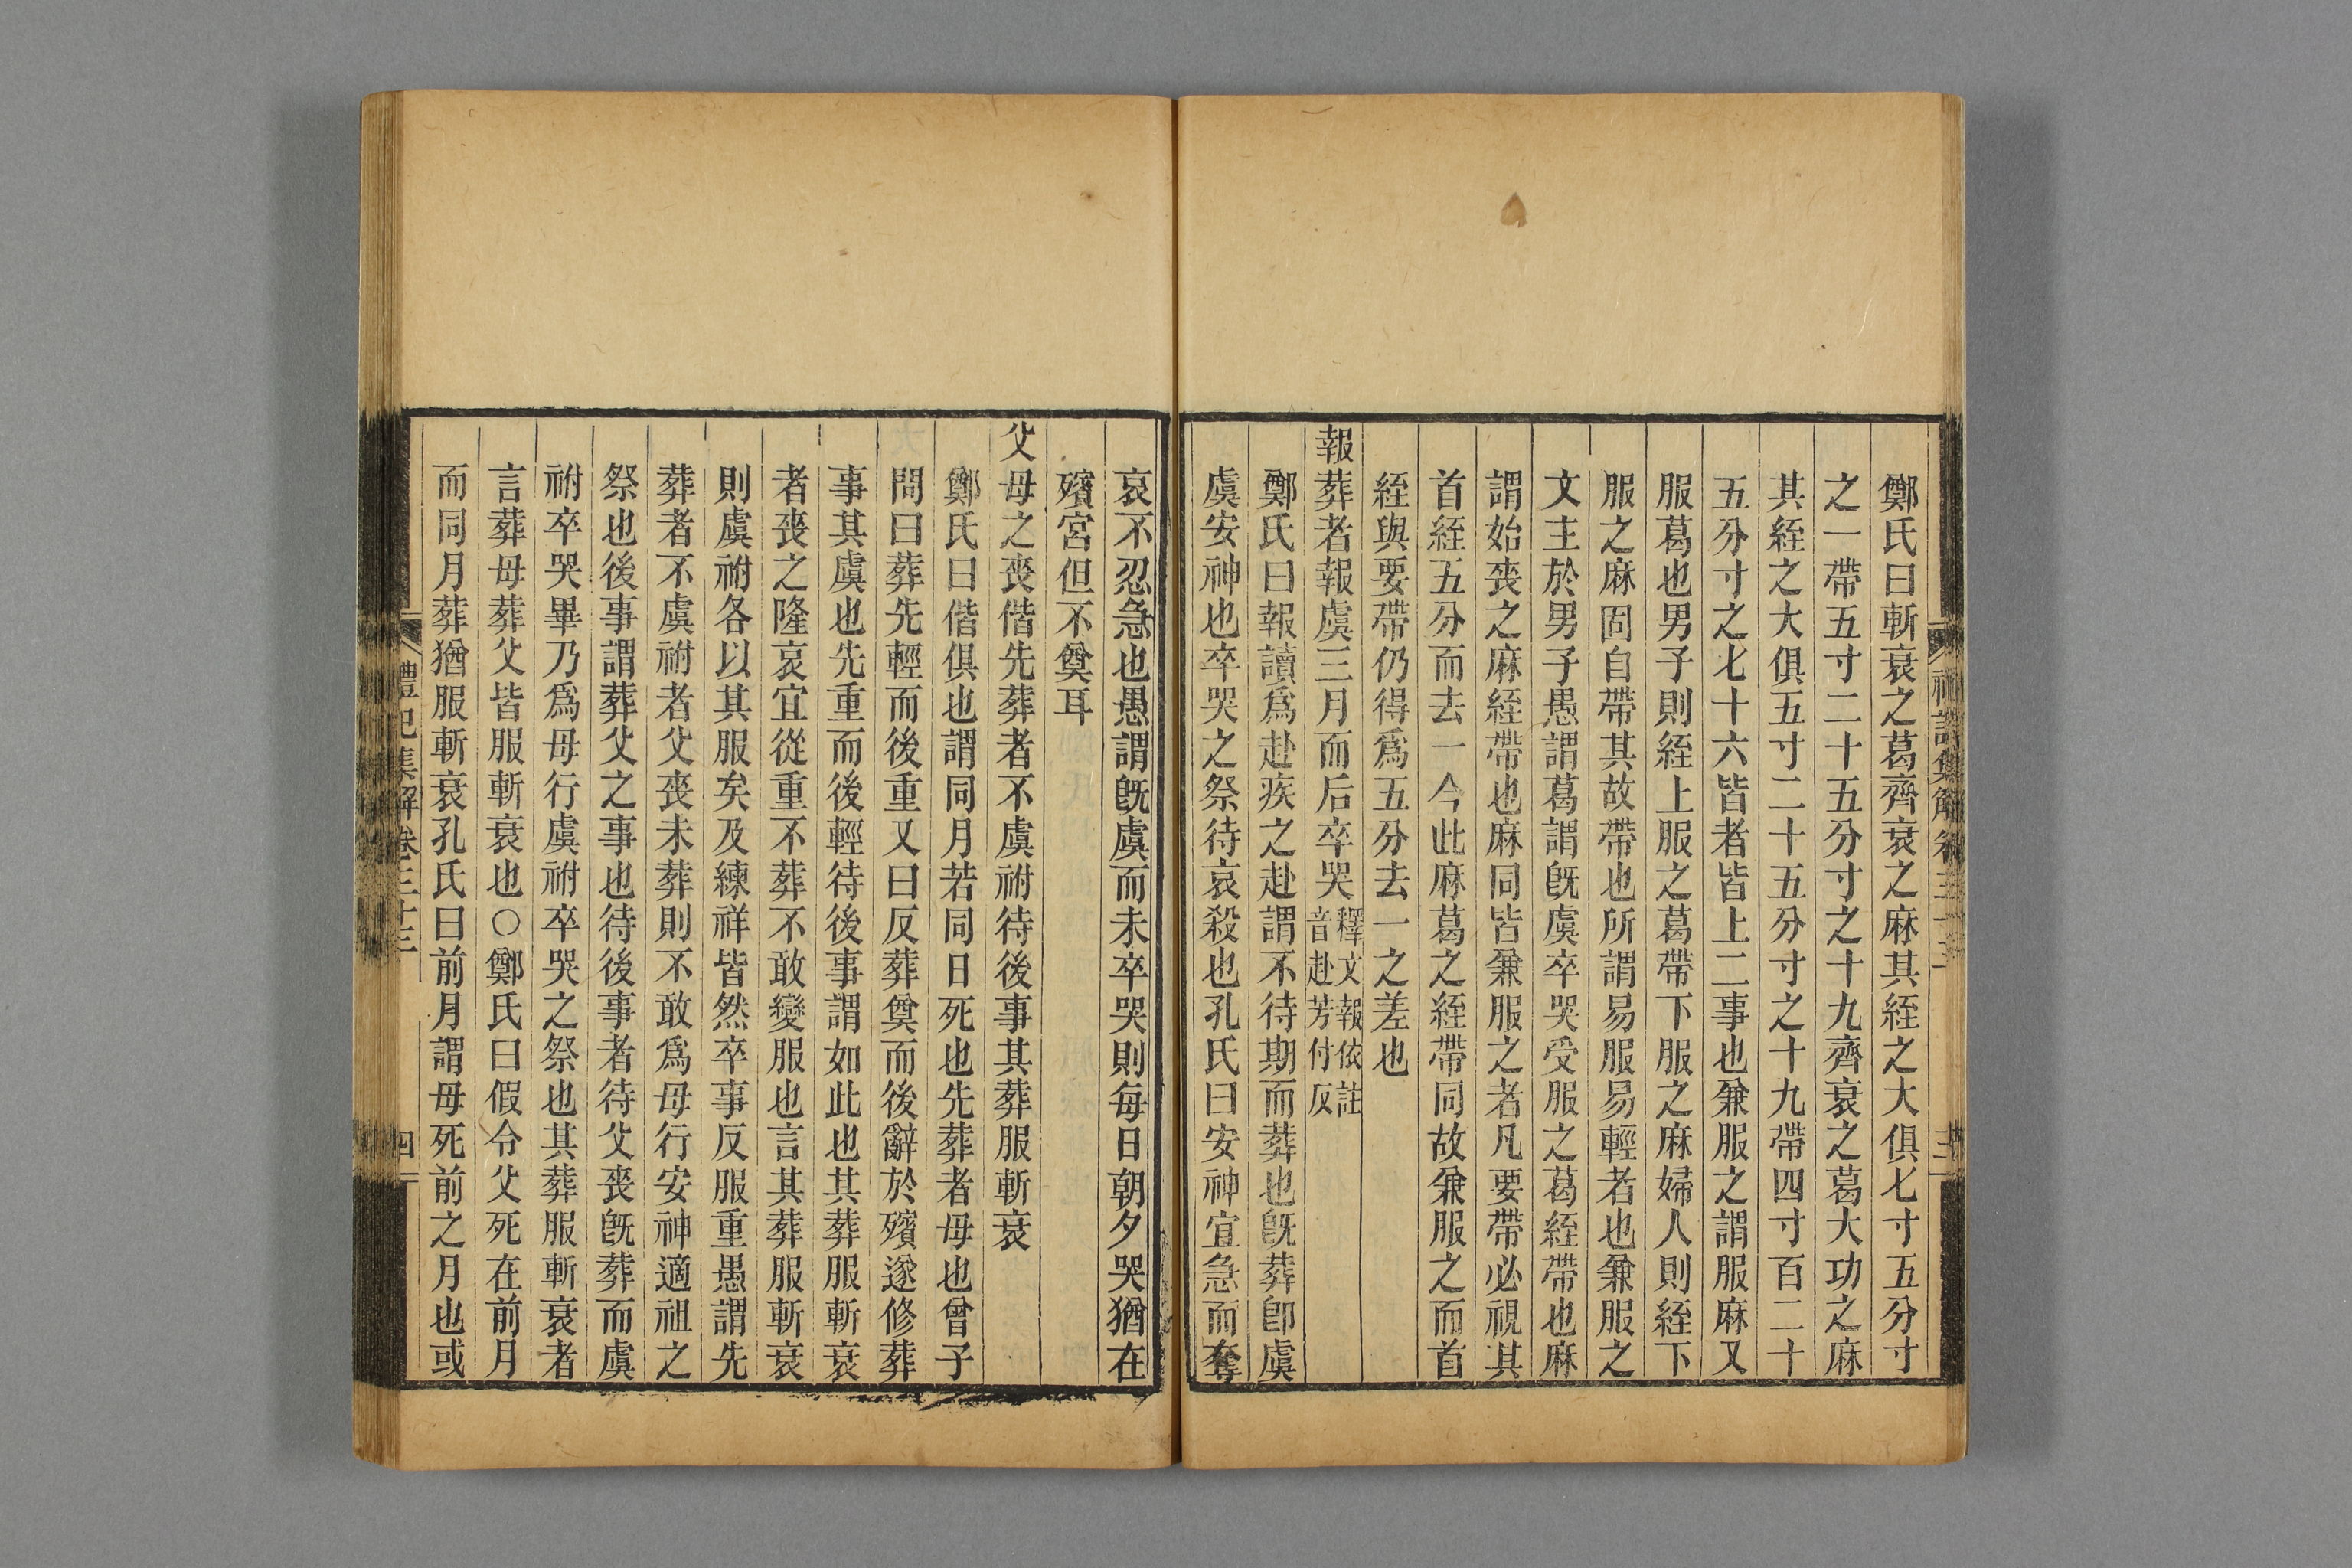 鄭氏曰斬衰之葛齊衰之麻其絰之大俱七寸五分寸
之一帶五寸二十五分寸之十九齊衰之葛大功之麻
其絰之大俱五寸二十五分寸之十九帶四寸百二十
五分寸之七十六皆者皆上二事也兼服之謂服麻又
服葛也男子則絰上服之葛帶下服之麻婦人則絰下
服之麻固自帶其故帶也所謂易服易輕者也兼服之
文主於男子愚謂葛謂旣虞卒哭受服之葛絰帶也麻
謂始喪之麻絰帶也麻同皆兼服之者凡要帶必視其
首絰五分而去一今此麻葛之絰帶同故兼服之而首
絰與要帶仍得爲五分去一之差也
報葬者報虞三月而后卒哭釋文報依註
音赴芳付反
鄭氏曰報讀爲赴疾之赴謂不待期而葬也旣葬卽虞
虞安神也卒哭之祭待哀殺也孔氏曰安神宜急而奪
哀不忍急也愚謂旣虞而未卒哭則每日朝夕哭猶在
殯宮但不奠耳
父母之喪偕先葬者不虞祔待後事其葬服斬衰
鄭氏曰偕俱也謂同月若同日死也先葬者母也曾子
問曰葬先輕而後重又曰反葬奠而後辭於殯遂修葬
事其虞也先重而後輕待後事謂如此也其葬服斬衰
者喪之隆哀宜從重不葬不敢變服也言其葬服斬衰
則虞祔各以其服矣及練祥皆然卒事反服重愚謂先
葬者不虞祔者父喪未葬則不敢爲母行安神適祖之
祭也後事謂葬父之事也待後事者待父喪旣葬而虞
祔卒哭畢乃爲母行虞祔卒哭之祭也其葬服斬衰者
言葬母葬父皆服斬衰也○鄭氏曰假令父死在前月
而同月葬猶服斬衰孔氏曰前月謂母死前之月也或
禮記集解卷三十三
四